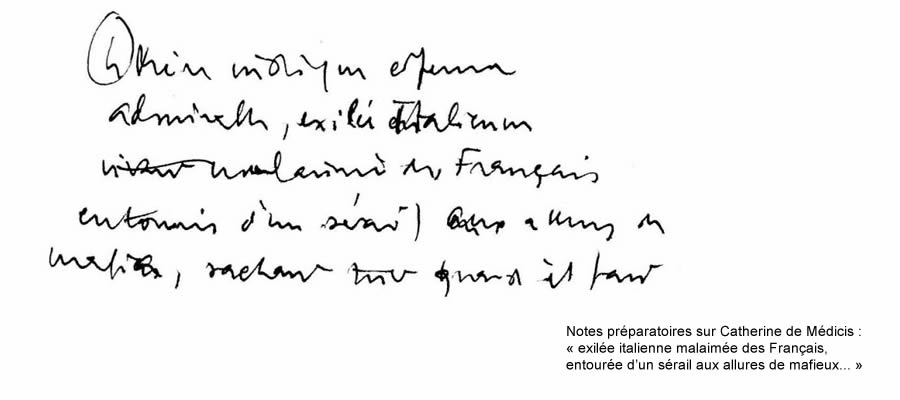 admirable, exilée italienne
malaimée des Français
entourée d'un sérail aux allures de
mafieux, sachant quand il faut
Notes préparatoires sur Catherine de Médicis :
« exilée italienne malaimée des Français,
entourée d'un sérail aux allures de mafieux... »